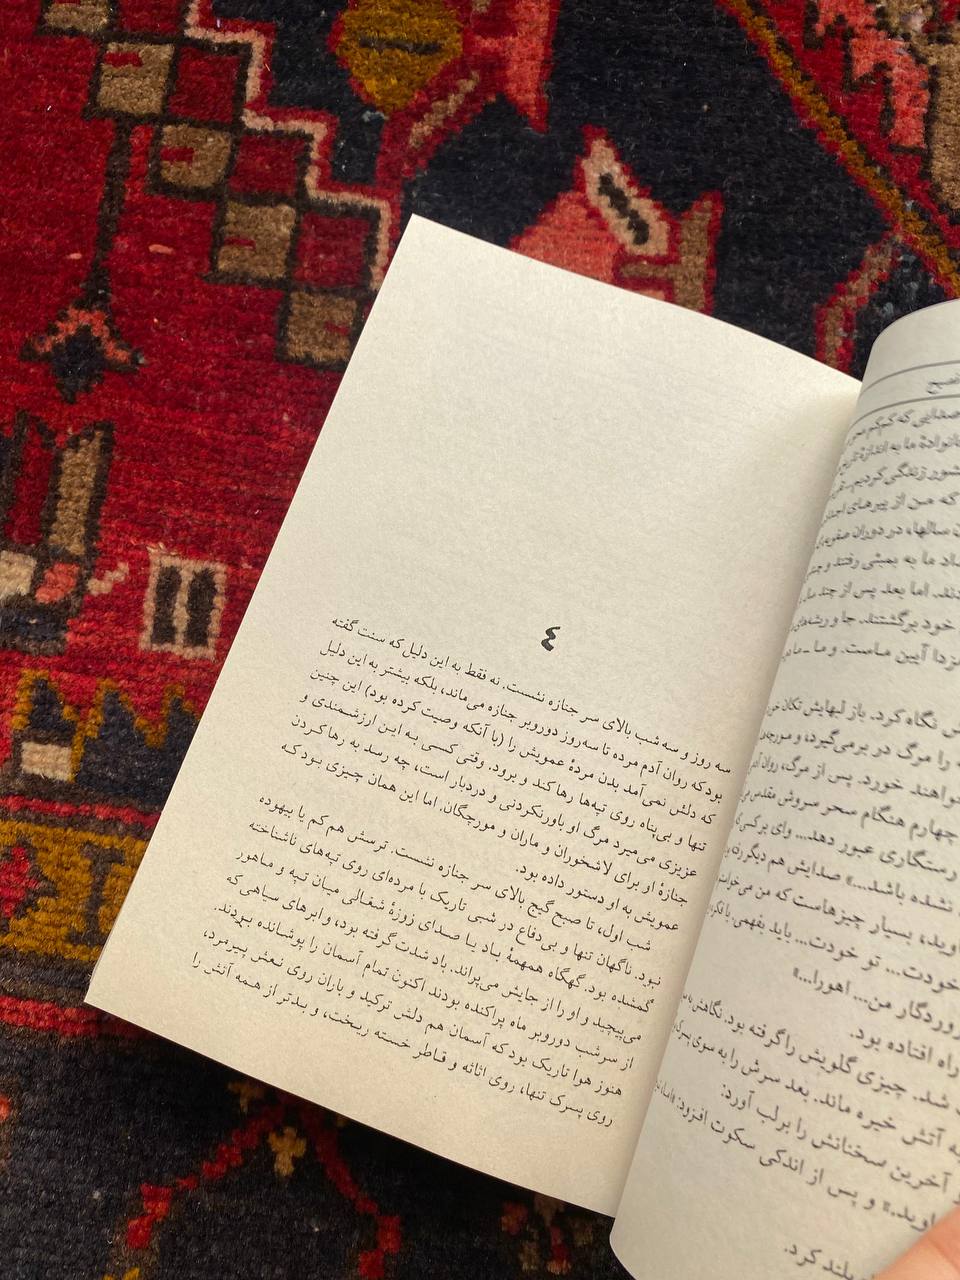 فصیح
صدایی که کم‌کم
خانوادهٔ ما به اندازهٔ تاریخ
زندگی کردیم...
که من از پیرهای
سالها، در دوران صفویه
ما به بمبئی رفتند و
اما بعد پس از چند سال
خود برگشتند. جا و ریشه‌های
مزدا آیین ماست. و ما ـ
نگاه کرد. باز لبهایش تکان
را مرگ در برمی‌گیرد، و
خواهند خورد. پس از مرگ، روان
چهارم هنگام سحر سروش مقدس
رستگاری عبور دهد... وای بر کسی
نشده باشد...» صدایش هم دیگر
بسیار چیزهاست که من
خودت... تو خودت... باید بفهمی.
من... اهورا...»
راه افتاده بود.
شد. چیزی گلویش را گرفته بود. نگاهش
به آتش خیره ماند. بعد سرش را به سوی
آخرین سخنانش را برلب آورد:
و پس از اندکی سکوت افزود:
بلند کرد.
٤
سه روز و سه شب بالای سر جنازه نشست. نه فقط به این دلیل که سنت گفته
بود که روان آدم مرده تا سه‌روز دوروبر جنازه می‌ماند، بلکه بیشتر به این دلیل
که دلش نمی‌آمد بدن مردهٔ عمویش را (با آنکه وصیت کرده بود) این چنین
تنها و بی‌پناه روی تپه‌ها رها کند و برود. وقتی کسی به این ارزشمندی و
عزیزی می‌میرد مرگ او باورنکردنی و دردبار است، چه رسد به رها کردن
جنازهٔ او برای لاشخوران و ماران و مورچگان. اما این همان چیزی بود که
عمویش به او دستور داده بود.
شب اول، تا صبح گیج بالای سر جنازه نشست. ترسش هم کم یا بیهوده
نبود. ناگهان تنها و بی‌دفاع در شبی تاریک با مرده‌ای روی تپه‌های ناشناخته
گمشده بود. گهگاه همهمهٔ باد یا صدای زوزهٔ شغالی میان تپه و ماهور
می‌پیچید و او را از جایش می‌پراند. باد شدت گرفته بود، و ابرهای سیاهی که
از سرشب دوروبر ماه پراکنده بودند اکنون تمام آسمان را پوشانده بودند.
هنوز هوا تاریک بود که آسمان هم دلش ترکید و باران روی نعش پیرمرد،
روی پسرک تنها، روی اثاثه و قاطر خسته ریخت، و بدتر از همه آتش را